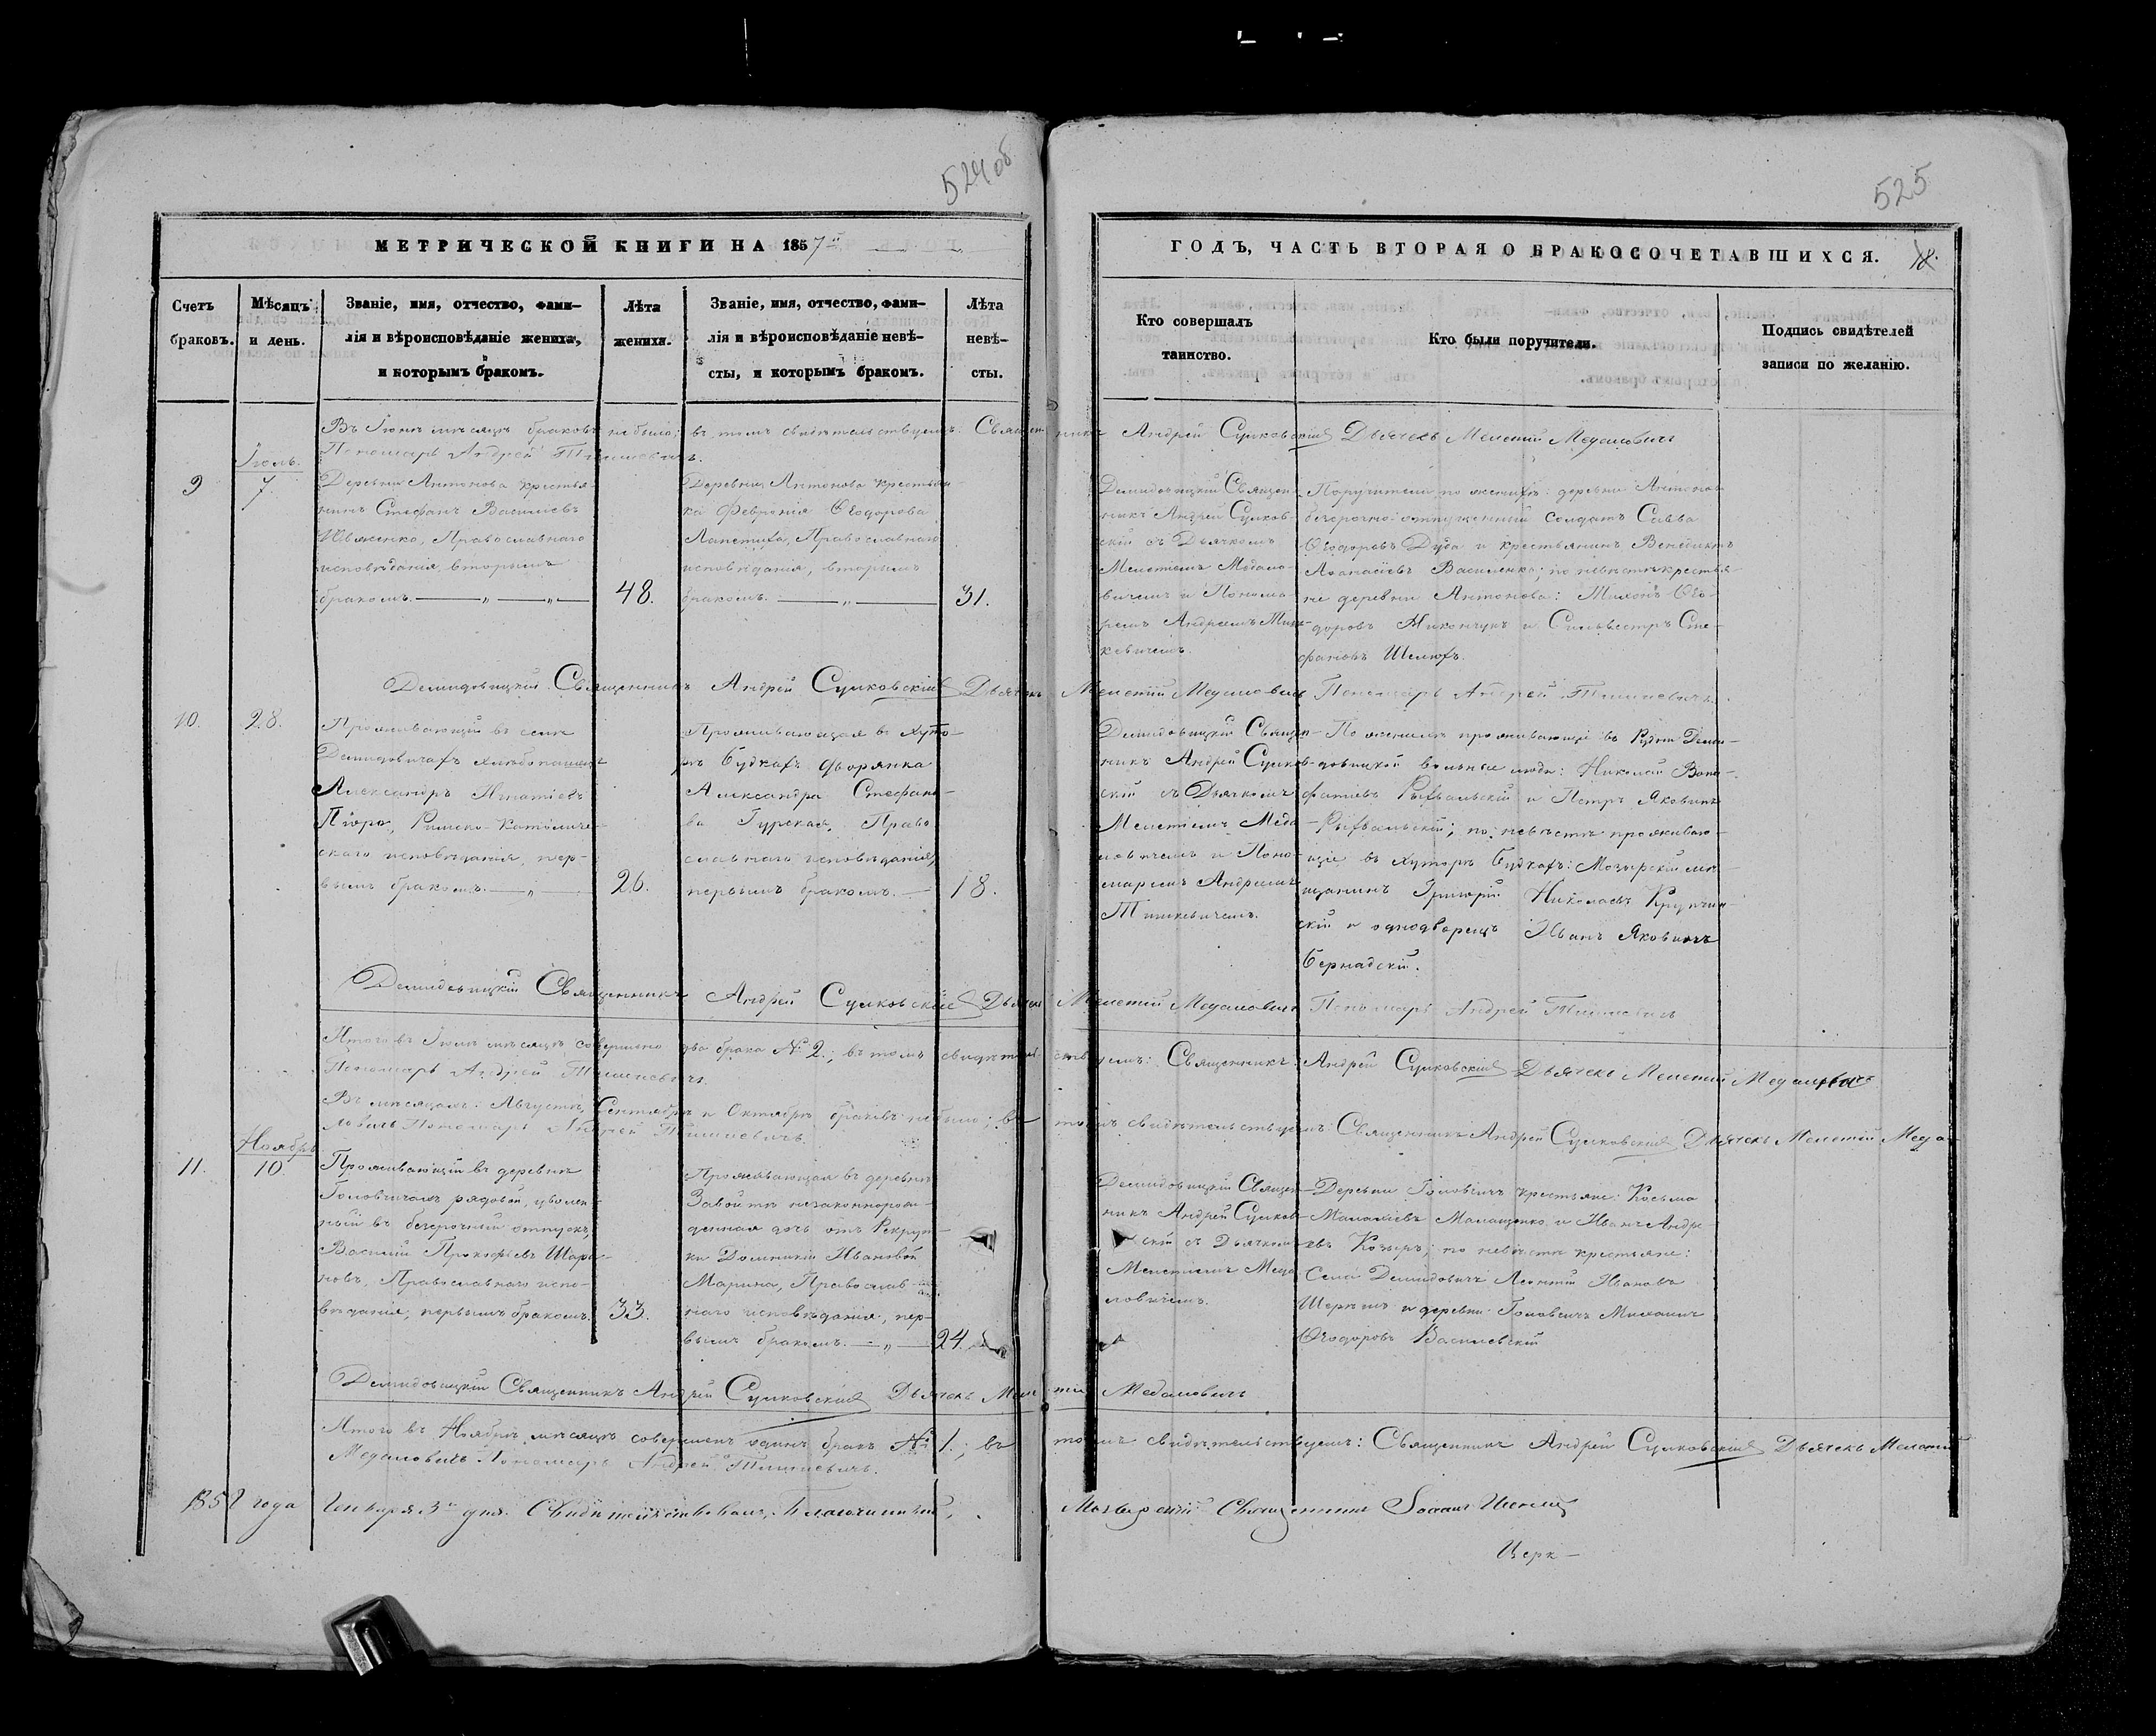 524об
МЕТРИЧЕСКОЙ КНИГИ НА 1857й
Счетъ браковъ.
Мѣсяцъ и день.
Званіе, имя, отчество, фами-
лія и вѣроисповѣданіе жениха,
и которымъ бракомъ.
Лѣта
жениха.
Званіе, имя, отчество, фами-
лія и вѣроисповѣданіе невѣ-
сты, и которымъ бракомъ.
Лѣта
невѣ-
сты.
525
ГОДЪ, ЧАСТЬ ВТОРАЯ О БРАКОСОЧЕТАВШИХСЯ. 18.
Кто совершалъ
таинство.
Кто были поручители.
Подпись свидѣтелей
записи по желанію.
Въ Іюнѣ мѣсяцѣ браковъ не было; въ томъ свидѣтельствуемъ: Священникъ Андрей Сулковскій Дьячекъ Мелетій Медаловичъ
Пономарь Андрей
9
Іюль.
7.
Деревни Антонова крестья-
нинъ Стефанъ Василіевъ
Православнаго
исповѣданія, вторымъ
бракомъ. — „ — „ —
48.
Деревни Антонова крестьян-
ка Февронія Ѳеодорова
Православнаго
исповѣданія, вторымъ
бракомъ. — „ —
31.
Демидовицкій Священ-
никъ Андрей Сулков-
скій съ Дьячкомъ
Мелетіемъ Медало-
вичемъ и Понома-
ремъ Андреемъ Тиш-
кевичемъ.
Поручители по женихѣ: деревни Антонов
безсрочно-отпускенный солдатъ Савва
Ѳеодоровъ Дуба и крестьянинъ Венедиктъ
Аѳанасіевъ Василенко; по невѣстѣ крестья-
не деревни Антонова: Тихонъ Ѳео-
доровъ Никончукъ и Сильвестръ Сте-
фановъ Шелюхъ.
Демидовицкій Священникъ Андрей Сулковскій Дьячекъ Мелетій Медаловичъ Пономарь Андрей
10.
28.
Проживающій въ селѣ
Демидовичахъ хлѣбопашецъ
Александръ Игнатіевъ
Римско-Католиче-
скаго исповѣданія, пер-
вымъ бракомъ. — „ —
26.
Проживающая въ Хуто-
рѣ Будкахъ дворянка
Александра Стефано-
ва Гурская, Право-
славнаго исповѣданія,
первымъ бракомъ. —
18.
Демидовицкій Священ-
никъ Андрей Сулков-
скій съ Дьячкомъ
Мелетіемъ Меда-
ловичемъ и Поно-
маремъ Андреемъ
Тишкевичемъ.
По женихѣ проживающіе въ Рудни Деми-
довицкой вольные люди: Николай Бони-
фатіевъ Рыхвальскій и Петръ Яковлевъ
Рыхвальскій; по невѣстѣ проживаю-
щіе въ Хуторѣ Будкахъ: Мозырскій мѣ-
щанинъ Григорій Николаевъ
скій и однодворецъ Иванъ Яковлевъ
Бернадскій.
Демидовицкій Священникъ Андрей Сулковскій Дьячекъ Мелетій Медаловичъ Пономарь Андрей
Итого въ Іюлѣ мѣсяцѣ совершено два брака № 2.; въ томъ свидѣтельствуемъ: Священникъ Андрей Сулковскій Дьячекъ Мелетій Медаловичъ
Пономарь Андрей
Въ мѣсяцахъ: Августѣ, Сентябрѣ и Октябрѣ браковъ не было; въ томъ свидѣтельствуемъ: Священникъ Андрей Сулковскій Дьячекъ Мелетій Меда-
ловичъ Пономарь Андрей
11.
Ноябрь
10
Проживающій въ деревнѣ
Головчичахъ рядовой, уволен-
ный въ безсрочный отпускъ,
Василій Прокофьевъ Шара-
новъ, Православнаго испо-
вѣданія, первымъ бракомъ.
33.
Проживающая въ деревнѣ
незаконнорож-
денная дочь отъ Рекрут-
ки Домникіи Ивановой
Марина, Православ-
наго исповѣданія, пер-
вымъ бракомъ. — „ —
24.
Демидовицкій Священ-
никъ Андрей Сулков-
скій съ Дьячкомъ
Мелетіемъ Меда-
ловичемъ.
Деревни Головчичъ крестьяне: Косьма
Малахіевъ Малащенко и Иванъ Андре-
евъ Козыръ; по невѣстѣ крестьяне:
Села Демидовичъ Леонтій Ивановъ
и деревни Головчичъ Михаилъ
Ѳеодоровъ Василевскій
Демидовицкій Священникъ Андрей Сулковскій Дьячекъ Мелетій Медаловичъ
Итого въ Ноябрѣ мѣсяцѣ совершенъ одинъ бракъ № 1.; въ томъ свидѣтельствуемъ: Священникъ Андрей Сулковскій Дьячекъ Мелетій
Медаловичъ Пономарь Андрей
1858 года Генваря 3го дня. Свидѣтельствовалъ, Благочинный, Мозырскій Священникъ Іоаннъ
Церк-